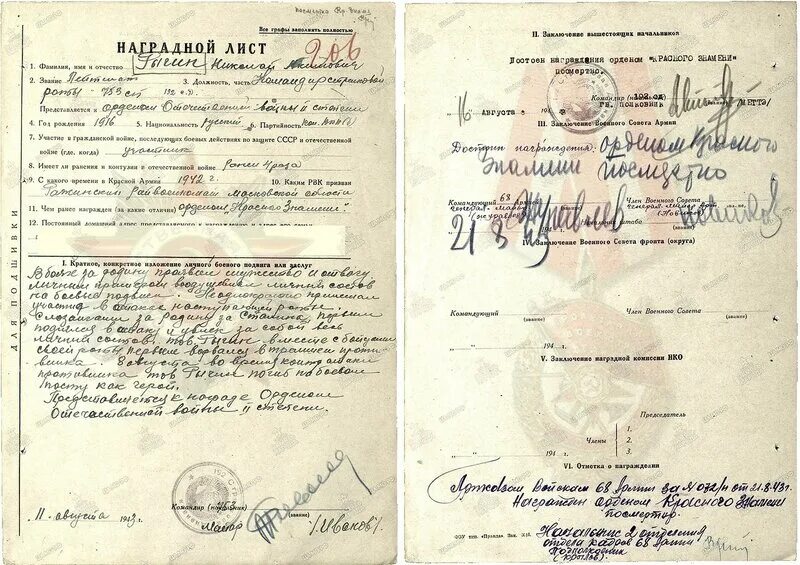 Все графы заполнять полностью
НАГРАДНОЙ ЛИСТ
206
1. Фамилия, имя и отчество Гычин Николай
2. Звание Лейтенант 3. Должность, часть Командир стрелковой
роты 753 сп 192 с.д.
Представляется к орденом Отечественной войны II степени
4. Год рождения 1916 5. Национальность Русский 6. Партийность
7. Участие в гражданской войне, последующих боевых действиях по защите СССР и отечественной
войне (где, когда) участник
8. Имеет ли ранения и контузии в отечественной войне ранен 4 раза
9. С какого времени в Красной Армии 1942 г. 10. Каким РВК призван
Райвоенкомат Московской области
11. Чем ранее награжден (за какие отличия) орденом "Красное Знамение"
12. Постоянный домашний адрес
I. Краткое, конкретное изложение личного боевого подвига или заслуг
В боях за родину проявил мужество и отвагу
личным примером воодушевлял личный состав
на боевые подвиги. Неоднократно принимал
участие в атаках наступающей роты
С лозунгами за родину за Сталина, первым
поднялся в атаку и увлек за собой весь
личный состав. тов. Гычин вместе с бойцами
своей роты первые ворвался в траншеи проти-
вника августа во время контратаки
противника тов Гычин погиб на боевом
посту как герой.
Представляется к награде Орденом
Отечественной войны II степени.
Командир 753
Майор (звание) /Иванов/
11 августа 1943 г.
ДЛЯ ПОДШИВКИ
II. Заключение вышестоящих начальников
Достоен награждения орденом "КРАСНОГО ЗНАМЕНИ"
посмертно.
Командир 192 сд
гв. полковник (МЕТТЭ)
"16" Августа
III. Заключение Военного Совета Армии
Достоин награждения орденом Красного
Знамени посмертно
Командующий 68 Член Военного Совета
Журавлев
21 8 43
IV. Заключение Военного Совета фронта (округа)
Командующий (звание) Член Военного Совета (звание)
" " 194 г.
V. Заключение наградной комиссии НКО
Председатель
Члены 1.
2.
3.
" " 194 г.
VI. Отметка о награждении
Приказом войскам 68 Армии за № 072/н от 21.8.43 г.
Награжден орденом Красного Знамени
посмертно.
Начальник 2 отделения
отдела кадров 68 Армии
подполковник
(Крылов)